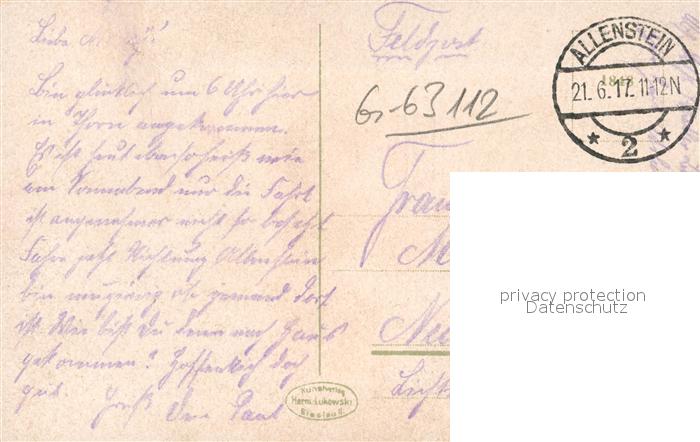 Liebe
Bin glücklich um 6 Uhr hier
in Thorn angekommen.
Es ist heut ebenso heiß wie
am Sonnabend nur die Fahrt
ist angenehmer nicht so besetzt
Fahre jetzt Richtung Allenstein
bin neugierig ob jemand dort
ist Wie bist Du denn nach Haus
gekommen? Hoffentlich doch
gut. Gruß Dein Paul
Feldpost
ALLENSTEIN
21. 6. 17. 11-12 N
* 2 *
Gr 63112
Frau
M
Ne
Licht
privacy protection
Datenschutz
Kunstverlag
Herm. Lukowski
Breslau